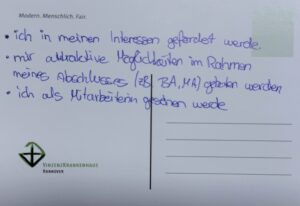 Modern. Menschlich. Fair.
• ich in meinen Interessen gefördert werde.
• mir attraktive Möglichkeiten im Rahmen
meines Abschlusses (zB BA, MA) geboten werden
• ich als Mitarbeiterin gesehen werde
VINZENZKRANKENHAUS
HANNOVER